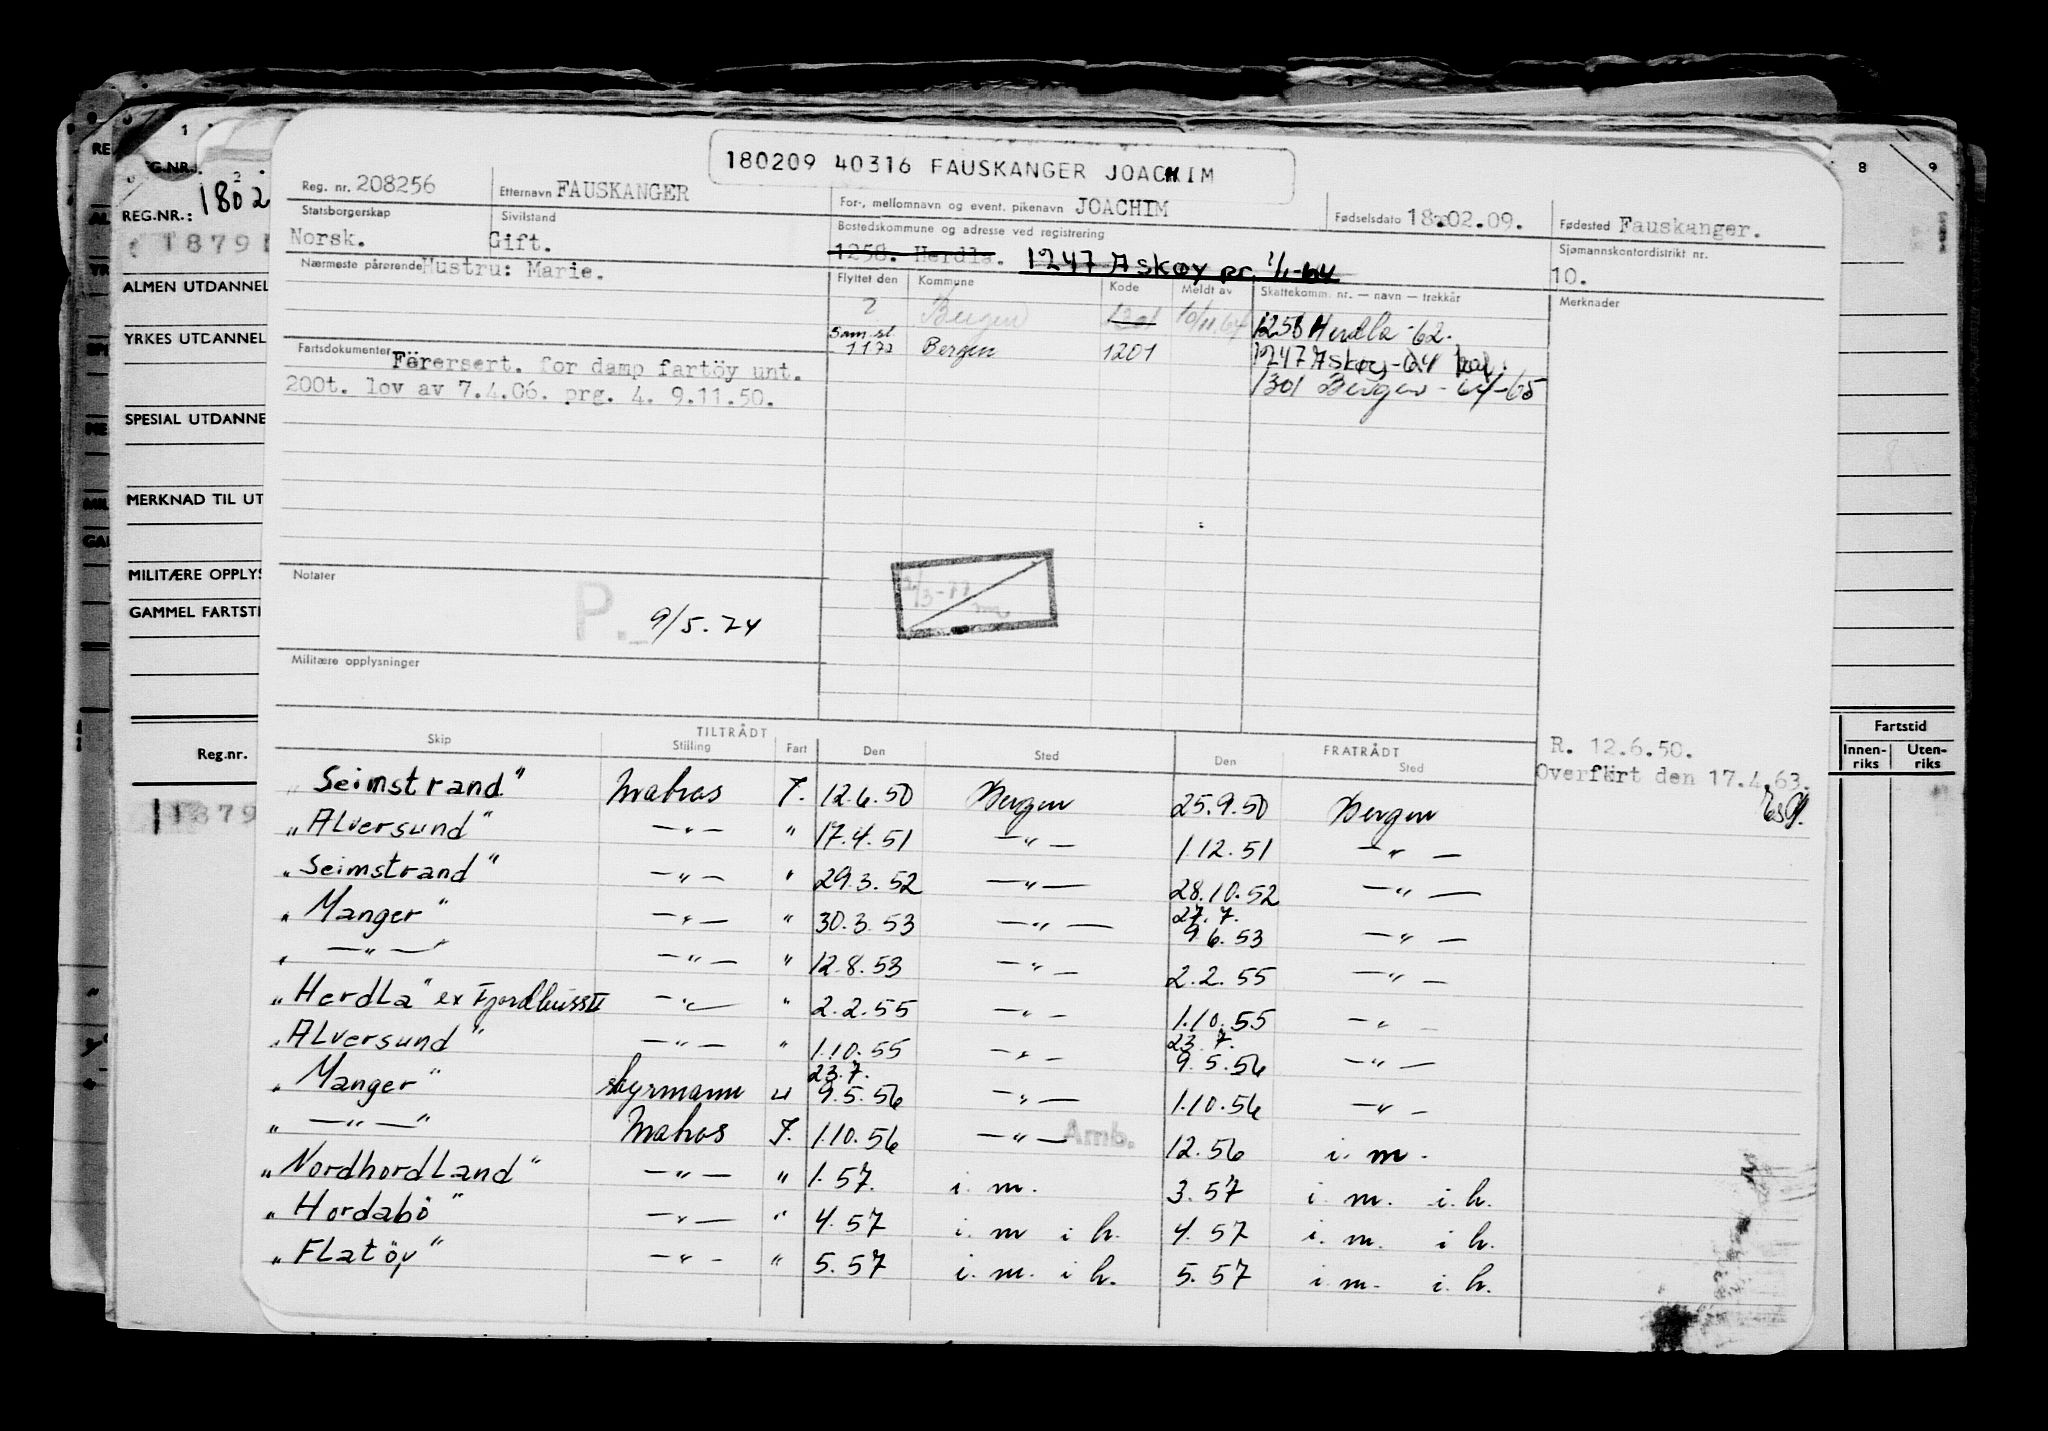 180209 40316 FAUSKANGER JOACHIM
Reg. nr. 208256 Etternavn FAUSKANGER For-, mellomnavn og event. pikenavn JOACHIM Fødselsdato 18.02.09. Fødested Fauskanger.
Statsborgerskap Norsk. Sivilstand Gift. Bostedskommune og adresse ved registrering 1258. Herdla. 1247 Askøy pr. 1/1-64 Sjømannskontordistrikt nr. 10.
Nærmeste pårørende Hustru: Marie.
Flyttet den Kommune Kode Meldt av Skattekomm. nr. — navn — trekkår Merknader
2 Bergen 1301 10/11.64 1258 Herdla -62.
Sam.sl. 1172 Bergen 1201 1247 Askøy -64
1301 Bergen - 64-65
Fartsdokumenter Förersert. for damp fartöy unt.
200t. lov av 7.4.06. prg. 4. 9.11.50.
Notater
P. 9/5.74
Militære opplysninger
TILTRÅDT FRATRÅDT
Skip Stilling Fart Den Sted Den Sted
R. 12.6.50.
Overfört den 17.4.63.
"Seimstrand" Matros J. 12.6.50 Bergen 25.9.50 Bergen
"Alversund" —"— " 17.4.51 —"— 1.12.51 —"—
"Seimstrand" —"— " 29.3.52 —"— 28.10.52 —"—
"Manger" —"— " 30.3.53 —"— 27.7. 9.6.53 —"—
" —"— " —"— " 12.8.53 —"— 2.2.55 —"—
"Herdla" ex Fjordbuss II —"— " 2.2.55 —"— 1.10.55 —"—
"Alversund" —"— " 1.10.55 —"— 23.7. 9.5.56 —"—
"Manger" styrmann " 23.7. 9.5.56 —"— 1.10.56 —"—
" —"— " Matros J. 1.10.56 —"— Amb. 12.56 i. m.
"Nordhordland" —"— " 1.57. i. m. 3.57 i. m. i. h.
"Hordabö" —"— " 4.57 i. m i h. 4.57 i. m. i h.
"Flatöy" —"— " 5.57 i. m. i h. 5.57 i m. i. h.
REG.NR.: 1802
1879
ALMEN UTDANNEL
YRKES UTDANNEL
SPESIAL UTDANNE
MERKNAD TIL UT
MILITÆRE OPPLYS
GAMMEL FARTSTI
Reg.nr.
1879
8 9
Fartstid
Innen-riks Uten-riks